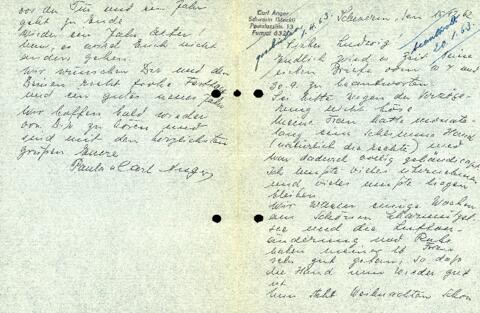 Carl Anger
Schwerin
Schwerin, den 15.12.62
Lieber Ludwig!
Endlich wird es Zeit Deine
Briefe vom 4.7 und
30.9. zu beantworten.
Sei bitte wegen der Verzöge-
rung nicht böse.
Meine Frau hatte monate-
lang eine schlimme Hand
(natürlich die rechte) und
war dadurch völlig gehandicapt
Ich musste vieles übernehmen
und vieles musste liegen
bleiben.
Wir waren einige Wochen
am schönen Scharmützel-
see und die Luftver-
änderung und Ruhe
haben meiner lb Frau
sehr gut getan, so daß
die Hand nun wieder gut
ist
Nun steht Weihnachten schon
vor der Tür und ein Jahr
geht zu Ende
Wieder ein Jahr älter
nun, es wird Euch nicht
anders gehen.
Wir wünschen Dir und den
Deinen recht frohe Festtage
und ein gutes neues Jahr
Wir hoffen bald wieder
von Dir zu hören und
sind mit den herzlichsten
Grüßen Eure
Paula u Carl Anger
beantwortet
20.1.63.